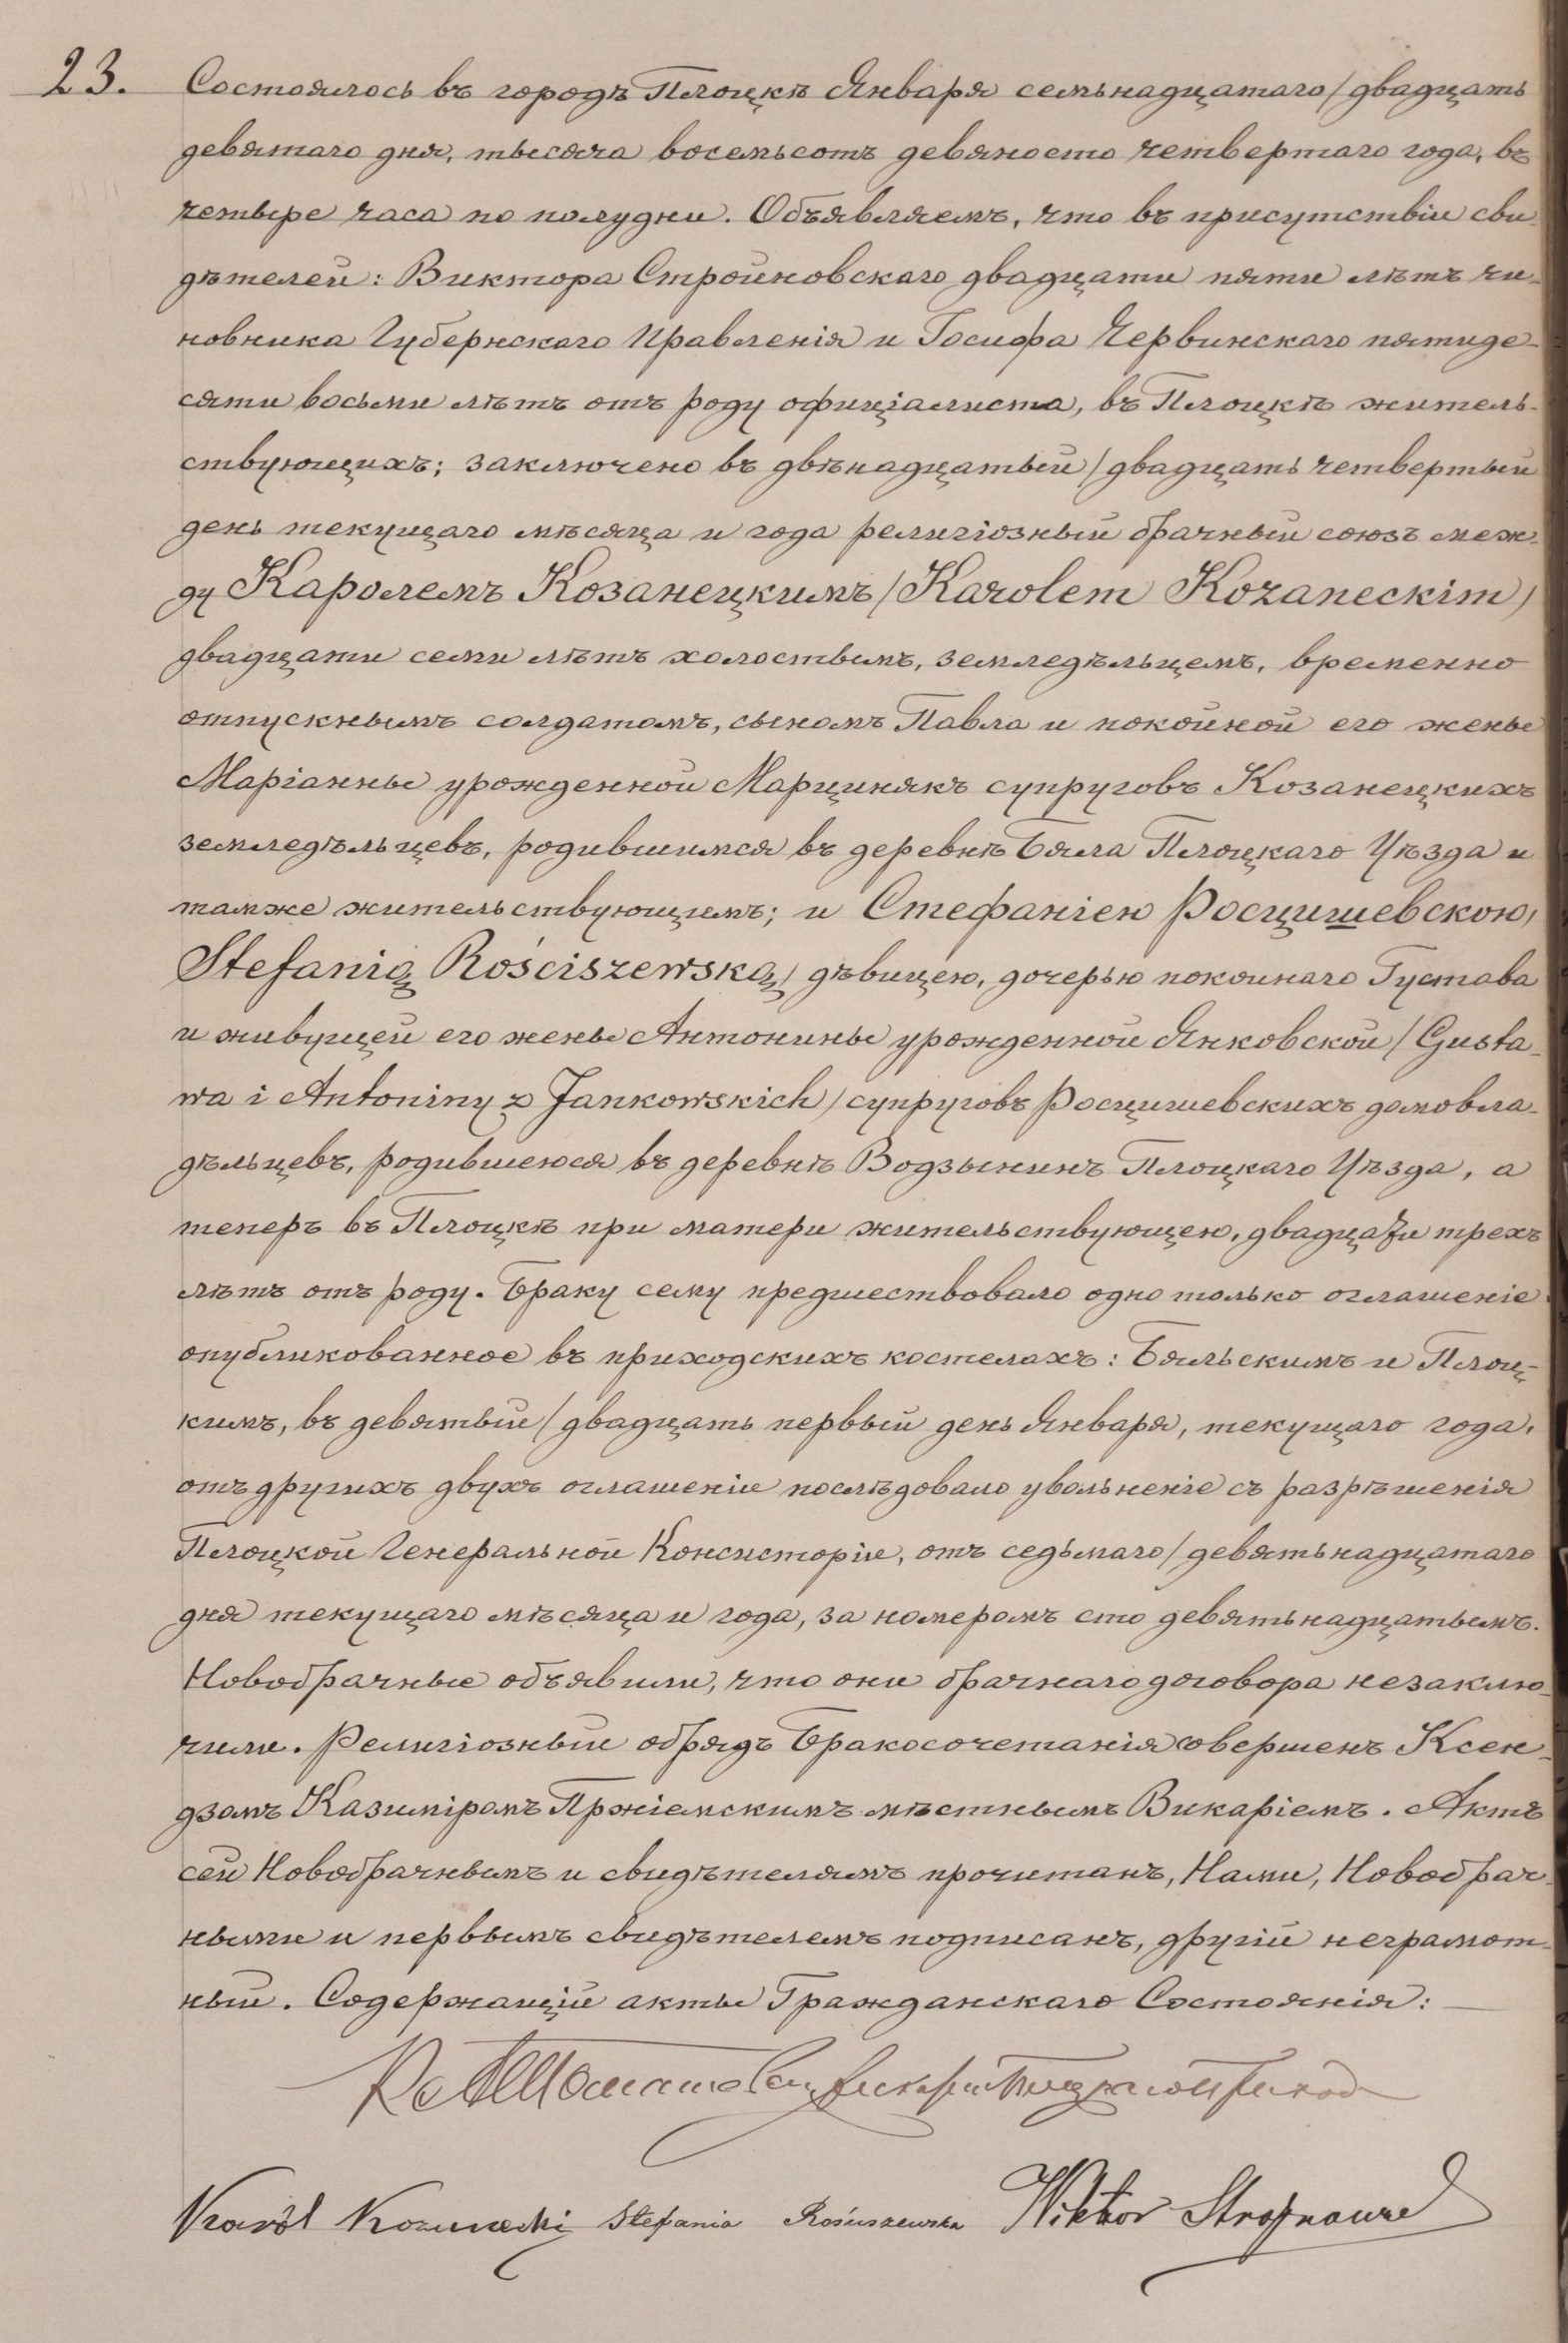 23. Состоялось въ городѣ Плоцкѣ Января семьнадцатаго/двадцать
девятаго дня, тысяча восемьсотъ девяносто четвертаго года, въ
четыре часа по полудни. Объявляемъ, что въ присутствіи сви-
дѣтелей: Виктора Стройновскаго двадцати пяти лѣтъ чи-
новника Губернскаго Правленія и Іосифа Червинскаго пятиде-
сяти восьми лѣтъ отъ роду официіалиста, въ Плоцкѣ житель-
ствующихъ; заключено въ двѣнадцатый/двадцать четвертый
день текущаго мѣсяца и года религіозный брачный союзъ меж-
ду Каролемъ Козанецкимъ/Karolem Kozaneckim/
двадцати семи лѣтъ холостымъ, земледѣльцемъ, временно
отпускнымъ солдатомъ, сыномъ Павла и покойной его жены
Маріанны урожденной Марцинякъ супруговъ Козанецкихъ
земледѣльцевъ, родившимся въ деревнѣ Бяла Плоцкаго Уѣзда и
тамже жительствующимъ; и Стефаніею Росцишевскою/
Stefanią Rościszewską/ дѣвицею, дочерью покойнаго Густава
и живущей его жены Антонины урожденной Янковской/Gusta-
wa i Antoniny z Jankowskich/супруговъ Росцишевскихъ домовла-
дѣльцевъ, родившеюся въ деревнѣ Водзыминъ Плоцкаго Уѣзда, а
теперъ въ Плоцкѣ при матери жительствующею, двадцати трехъ
лѣтъ отъ роду. Браку сему предшествовало одно только оглашеніе
опубликованное въ приходскихъ костелахъ: Бяльскимъ и Плоц-
кимъ, въ девятый/двадцать первый день Января, текущаго года,
отъ другихъ двухъ оглашеніи послѣдовало увольненіе съ разрѣшенія
Плоцкой Генеральной Консисторіи, отъ седьмаго/девятьнадцатаго
дня текущаго мѣсяца и года, за номеромъ сто девятьнадцатымъ.
Новобрачные объявили, что они брачнаго договора незаклю-
чили. Религіозный обрядъ Бракосочетанія совершенъ Ксен-
дзомъ Казиміромъ Пржіемскимъ мѣстнымъ Викаріемъ. Актъ
сей Новобрачнымъ и свидѣтелямъ прочитанъ, Нами, Новобрач-
ными и первымъ свидѣтелемъ подписанъ, другій неграмот-
ный. Содержащій акты Гражданскаго Состоянія:
Karol Kozanecki Stefania Rościszewska Wiktor Strojnowski